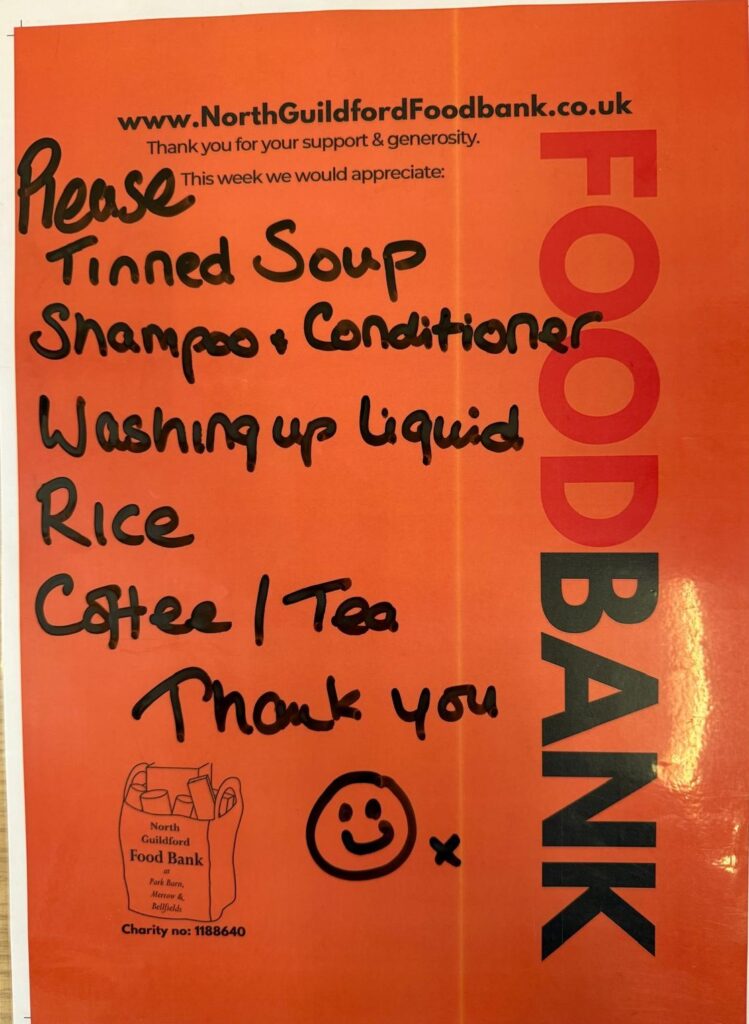 www.NorthGuildfordFoodbank.co.uk
Thank you for your support & generosity.
This week we would appreciate:
Please
Tinned Soup
Shampoo + Conditioner
Washing up Liquid
Rice
Coffee / Tea
Thank you
x
North
Guildford
Food Bank
at
Park Barn,
Merrow &,
Bellfields
Charity no: 1188640
FOODBANK